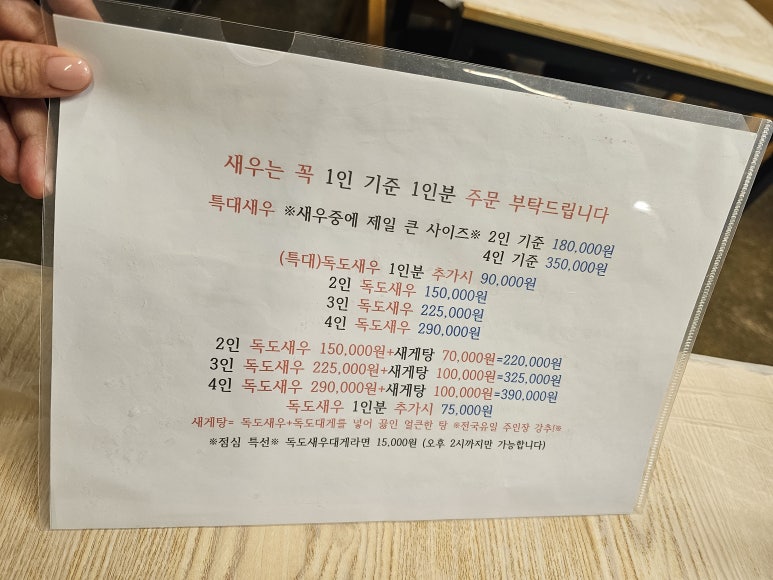 새우는 꼭 1인 기준 1인분 주문 부탁드립니다
특대새우 ※새우중에 제일 큰 사이즈※ 2인 기준 180,000원
4인 기준 350,000원
(특대)독도새우 1인분 추가시 90,000원
2인 독도새우 150,000원
3인 독도새우 225,000원
4인 독도새우 290,000원
2인 독도새우 150,000원+새게탕 70,000원=220,000원
3인 독도새우 225,000원+새게탕 100,000원=325,000원
4인 독도새우 290,000원+새게탕 100,000원=390,000원
독도새우 1인분 추가시 75,000원
새게탕= 독도새우+독도대게를 넣어 끓인 얼큰한 탕 ※전국유일 주인장 강추!※
※점심 특선※ 독도새우대게라면 15,000원 (오후 2시까지만 가능합니다)